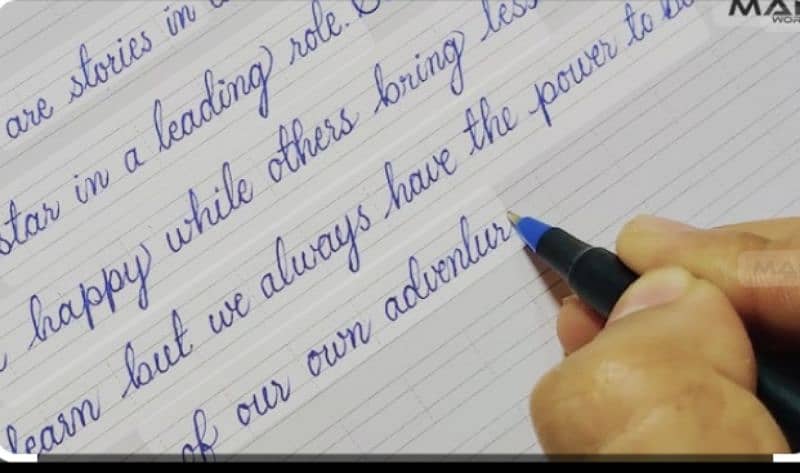 are stories in
MA
WOR
star in a leading role.
happy while others bring les
learn but we always have the power to b
of our own adventur
MA